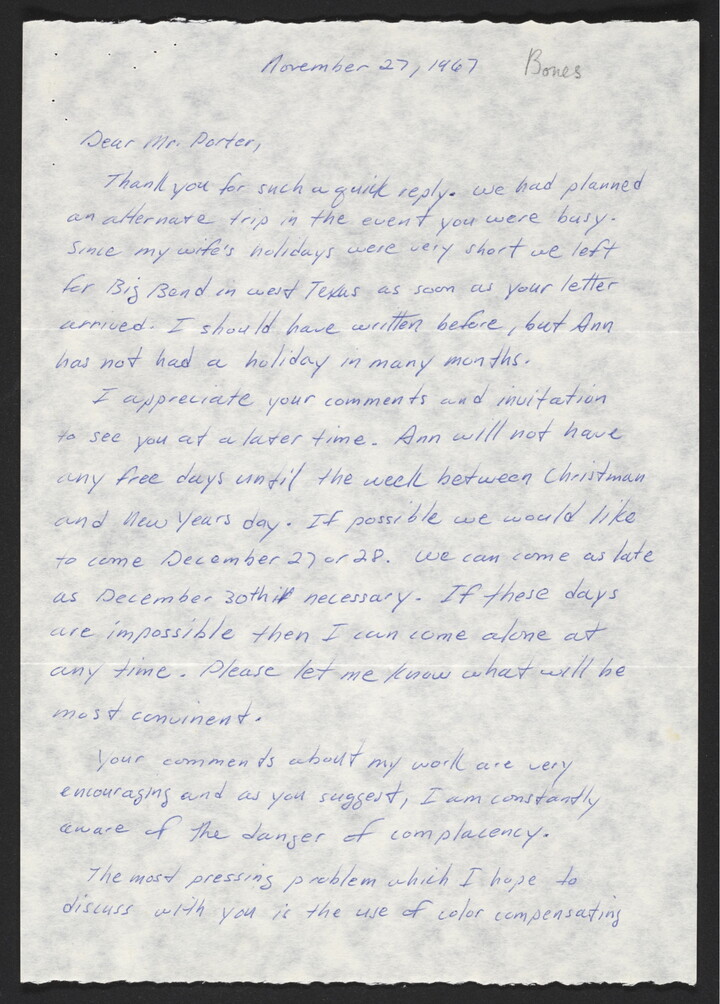 November 27, 1967 Bones
Dear Mr. Porter,
Thank you for such a quick reply. We had planned
an alternate trip in the event you were busy.
Since my wife's holidays were very short we left
for Big Bend in west Texas as soon as your letter
arrived. I should have written before, but Ann
has not had a holiday in many months.
I appreciate your comments and invitation
to see you at a later time. Ann will not have
any free days until the week between Christman
and New Years day. If possible we would like
to come December 27 or 28. We can come as late
as December 30th if necessary. If these days
are impossible then I can come alone at
any time. Please let me know what will be
most convinent.
Your comments about my work are very
encouraging and as you suggest, I am constantly
aware of the danger of complacency.
The most pressing problem which I hope to
discuss with you is the use of color compensating